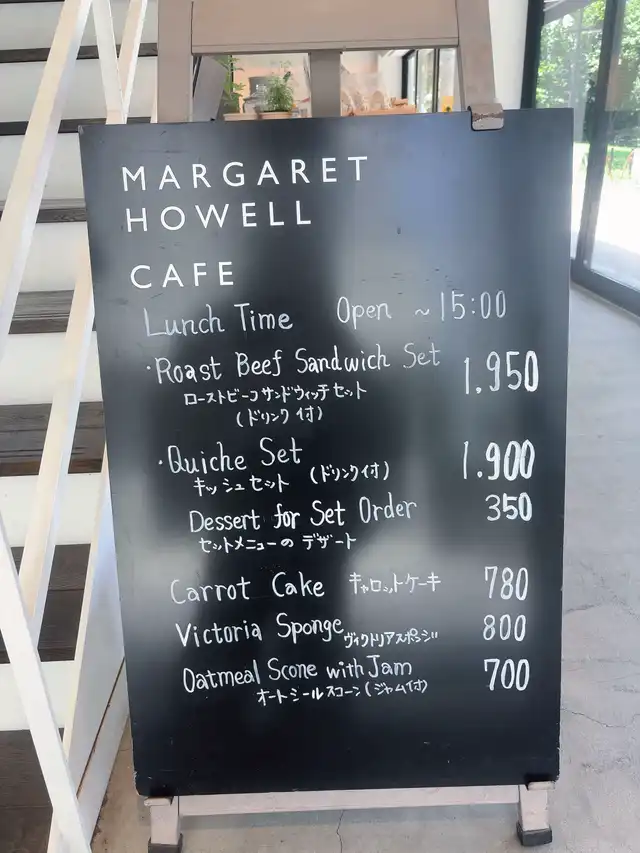 MARGARET
HOWELL
CAFE
Lunch Time Open ~15:00
・Roast Beef Sandwich Set 1.950
ローストビーフサンドウィッチセット
(ドリンク付)
・Quiche Set 1.900
キッシュセット (ドリンク付)
Dessert for Set Order 350
セットメニューの デザート
Carrot Cake キャロットケーキ 780
Victoria Sponge ヴィクトリアスポンジ 800
Oatmeal Scone with Jam 700
オートミールスコーン(ジャム付)